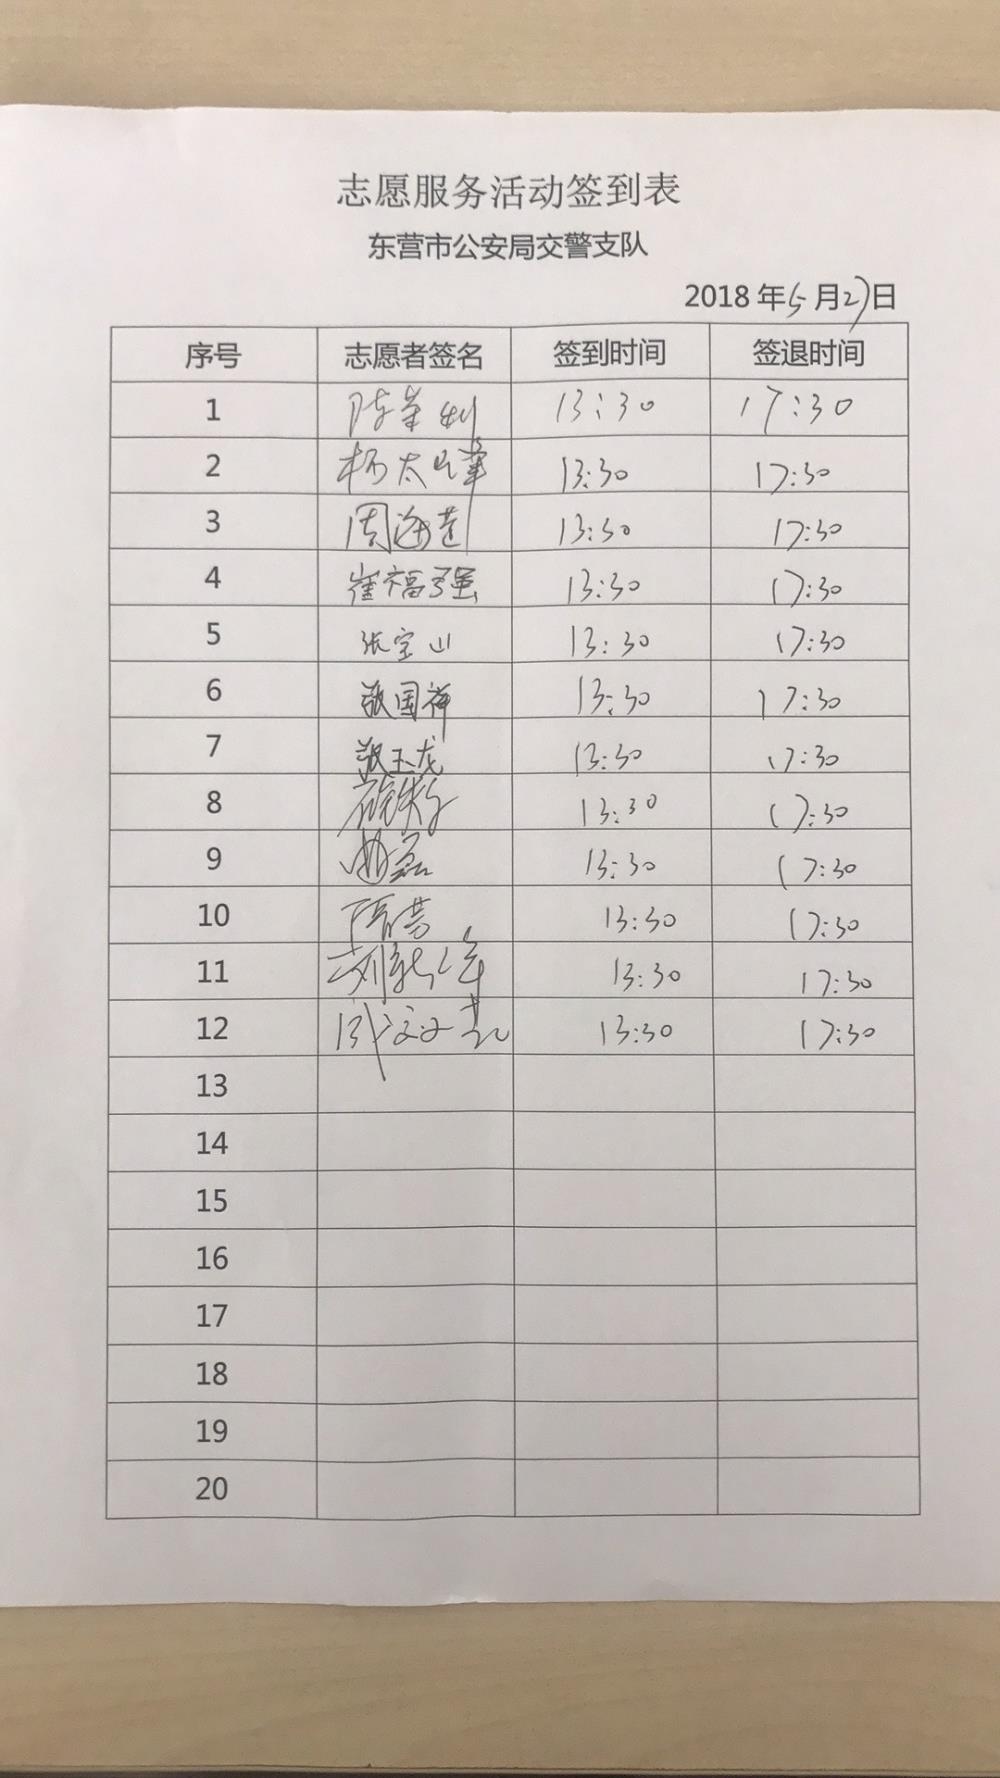 志愿服务活动签到表
东营市公安局交警支队
2018年5月27日
序号 志愿者签名 签到时间 签退时间
1 13:30 17:30
2 13:30 17:30
3 周海莲 13:30 17:30
4 崔福强 13:30 17:30
5 张宝山 13:30 17:30
6 张国祥 13:30 17:30
7 张玉龙 13:30 17:30
8 13:30 17:30
9 曲磊 13:30 17:30
10 13:30 17:30
11 13:30 17:30
12 13:30 17:30
13
14
15
16
17
18
19
20